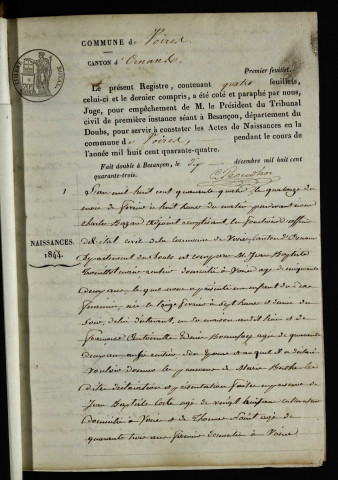 COMMUNE de Voires
CANTON d'Ornans
Premier feuillet
Le présent Registre, contenant quatre feuillets,
celui-ci et le dernier compris, a été coté et paraphé par nous,
Juge, pour empêchement de M. le Président du Tribunal
civil de première instance séant à Besançon, département du
Doubs, pour servir à constater les Actes de Naissances en la
commune de Voires pendant le cours de
l'année mil huit cent quarante-quatre.
Fait double à Besançon, le dix décembre mil huit cent
quarante-trois.
1
NAISSANCES.
1844.
L'an mil huit cent quarante quatre le quatorze du
mois de février à huit heures du matin pardevant nous
Charles adjoint remplissant les fonctions d'officier
de l'état civil de la commune de Voires canton d'Ornans
département du Doubs est comparu M. Jean Baptiste
maire domicilié à Voires agé de cinquante
deux ans le quel nous a présenté un enfant du sexe
féminin, née le treize février à sept heures du
soir, de lui déclarant, en sa maison et
agé de quarante
deux ans son épouse et auquel il a déclaré
vouloir donner le prénom de Marie les
dites déclaration et présentation faites en présence de
Jean Baptiste agé de vingt ans cultivateur
domicilié à Voires et de Thomas agé de
quarante trois ans domicilié à Voires